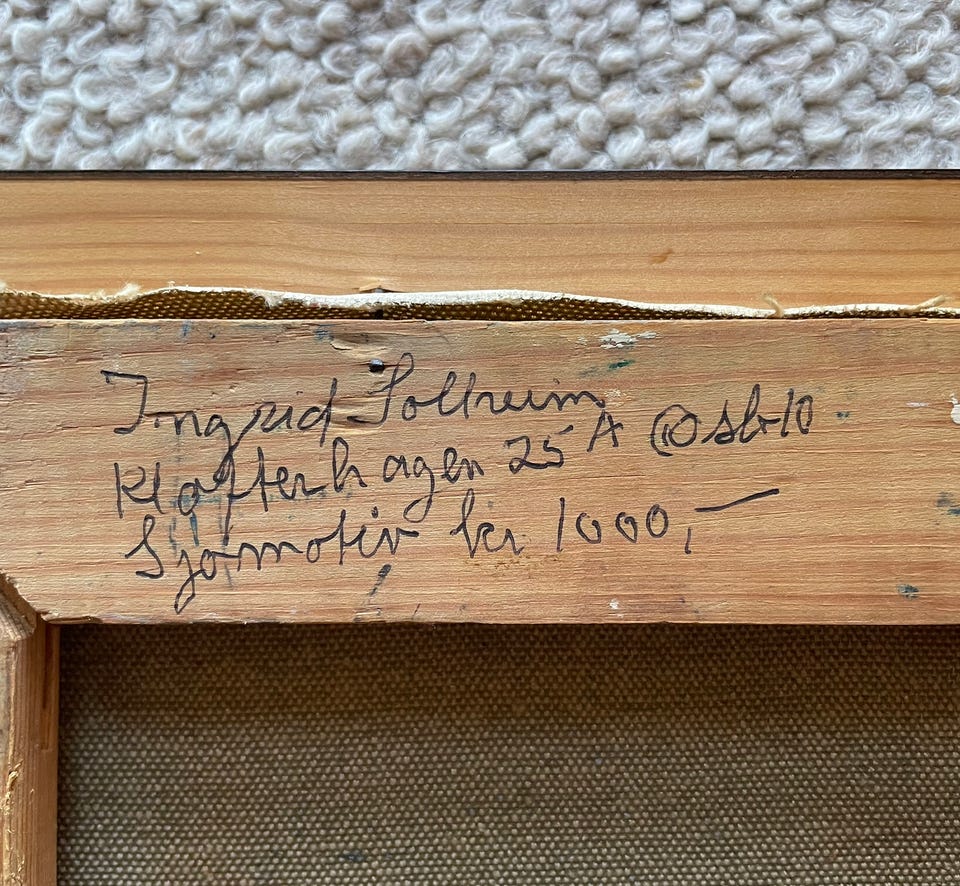 Ingrid Solheim
Kløfterhagen 25 A Oslo 10.
Sjømotiv kr. 1000,-